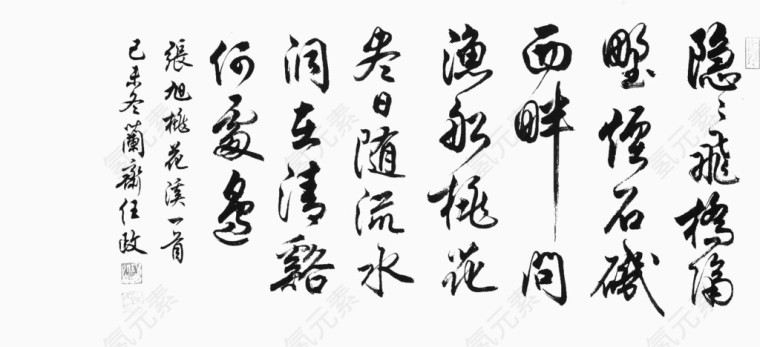 隐〻飛橋隔
野煙石磯
西畔問
漁船桃花
尽日随流水
洞在清谿
何處邊
張旭桃花溪一首
己未冬蘭齋任政
氢元素